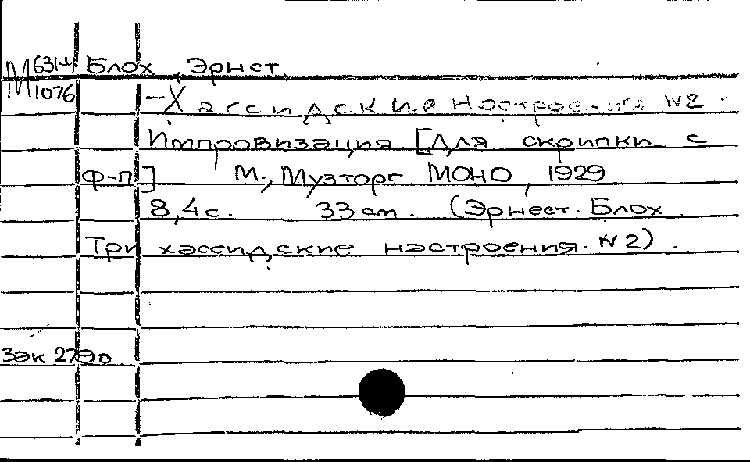 М 631н Блох, Эрнст
1076 - Хассидские настроения №2.
Импровизация [Для скрипки с
ф-п] М., Музторг МОНО, 1929
8,4с. 33 см. (Эрнест Блох.
Три хассидские настроения. №2).
Зак